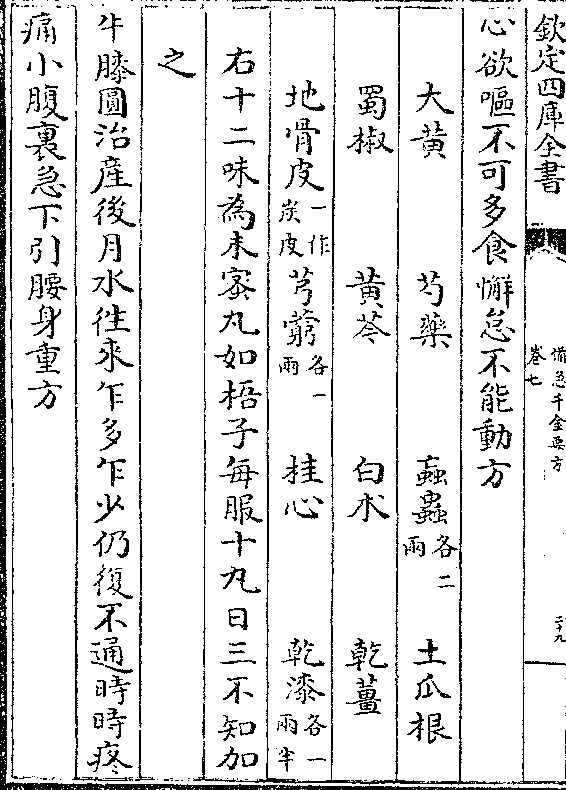 欽定四庫全書
備急千金要方
卷七
二十九
心欲嘔不可多食懈怠不能動方
大黄 芍藥 䗪蟲各二兩 土瓜根
蜀椒 黄芩 白术 乾薑
地骨皮一作炭皮 芎藭各一兩 桂心 乾漆各一兩半
右十二味為末蜜丸如梧子每服十丸日三不知加
之
牛膝圓治産後月水往來乍多乍少仍復不通時時疼
痛小腹裏急下引腰身重方